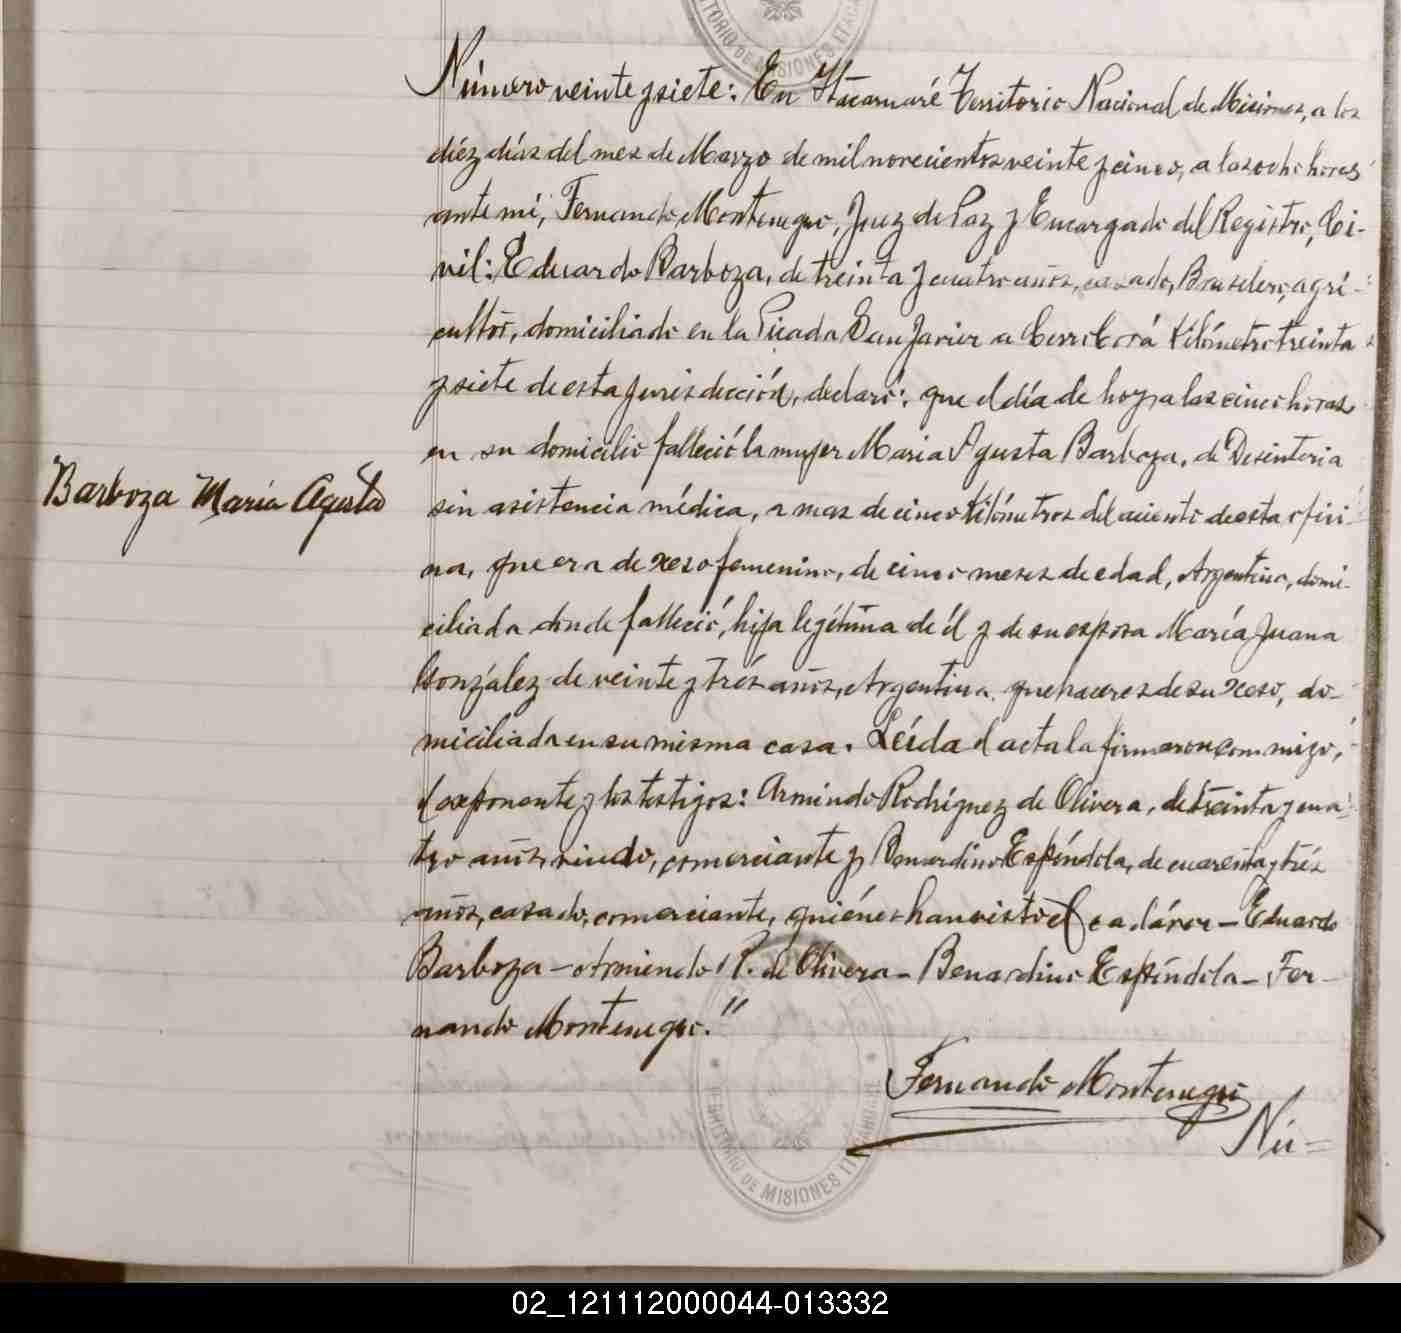 TERRITORIO DE MISIONES ITACA
Número veinte y siete: En Itacaruaré Territorio Nacional de Misiones, a los
diéz días del mes de Marzo de mil novecientos veinte y cinco, a las ocho horas
ante mi, Fernando Montenegro, Juez de Paz y Encargado del Registro, Ci-
vil: Eduardo Barboza, de treinta y cuatro años, casado, Brasilero, agri-
cultor, domiciliado en la Picada San Javier a Cerro Corá kilómetro treinta
y siete de esta jurisdicción, declaró: que el día de hoy a las cinco horas
en su domicilio falleció la mujer Maria Agusta Barboza, de Desinteria
Barboza María Agusta
sin asistencia médica, a mas de cinco kilómetros del aciento de esta ofici-
na, que era de xeso femenino, de cinco meses de edad, Argentina, domi-
ciliada donde falleció, hija legítima de él y de su esposa María Juana
González de veinte y trés años, Argentina, quehaceres de su xeso, do-
miciliada en su misma casa. Leída el acta la firmaron conmigo,
el exponente y los testigos: Armindo Rodríguez de Olivera, de treinta y cua-
tro años, viudo, comerciante y Benardino Espíndola, de cuarenta y trés
años, casado, comerciante, quiénes han visto el cadáver – Eduardo
Barboza – Armindo R. de Olivera – Benardino Espíndola – Fer-
nando Montenegro."
Fernando Montenegro
Nú=
TERRITORIO DE MISIONES ITACARUARÉ
02_121112000044-013332